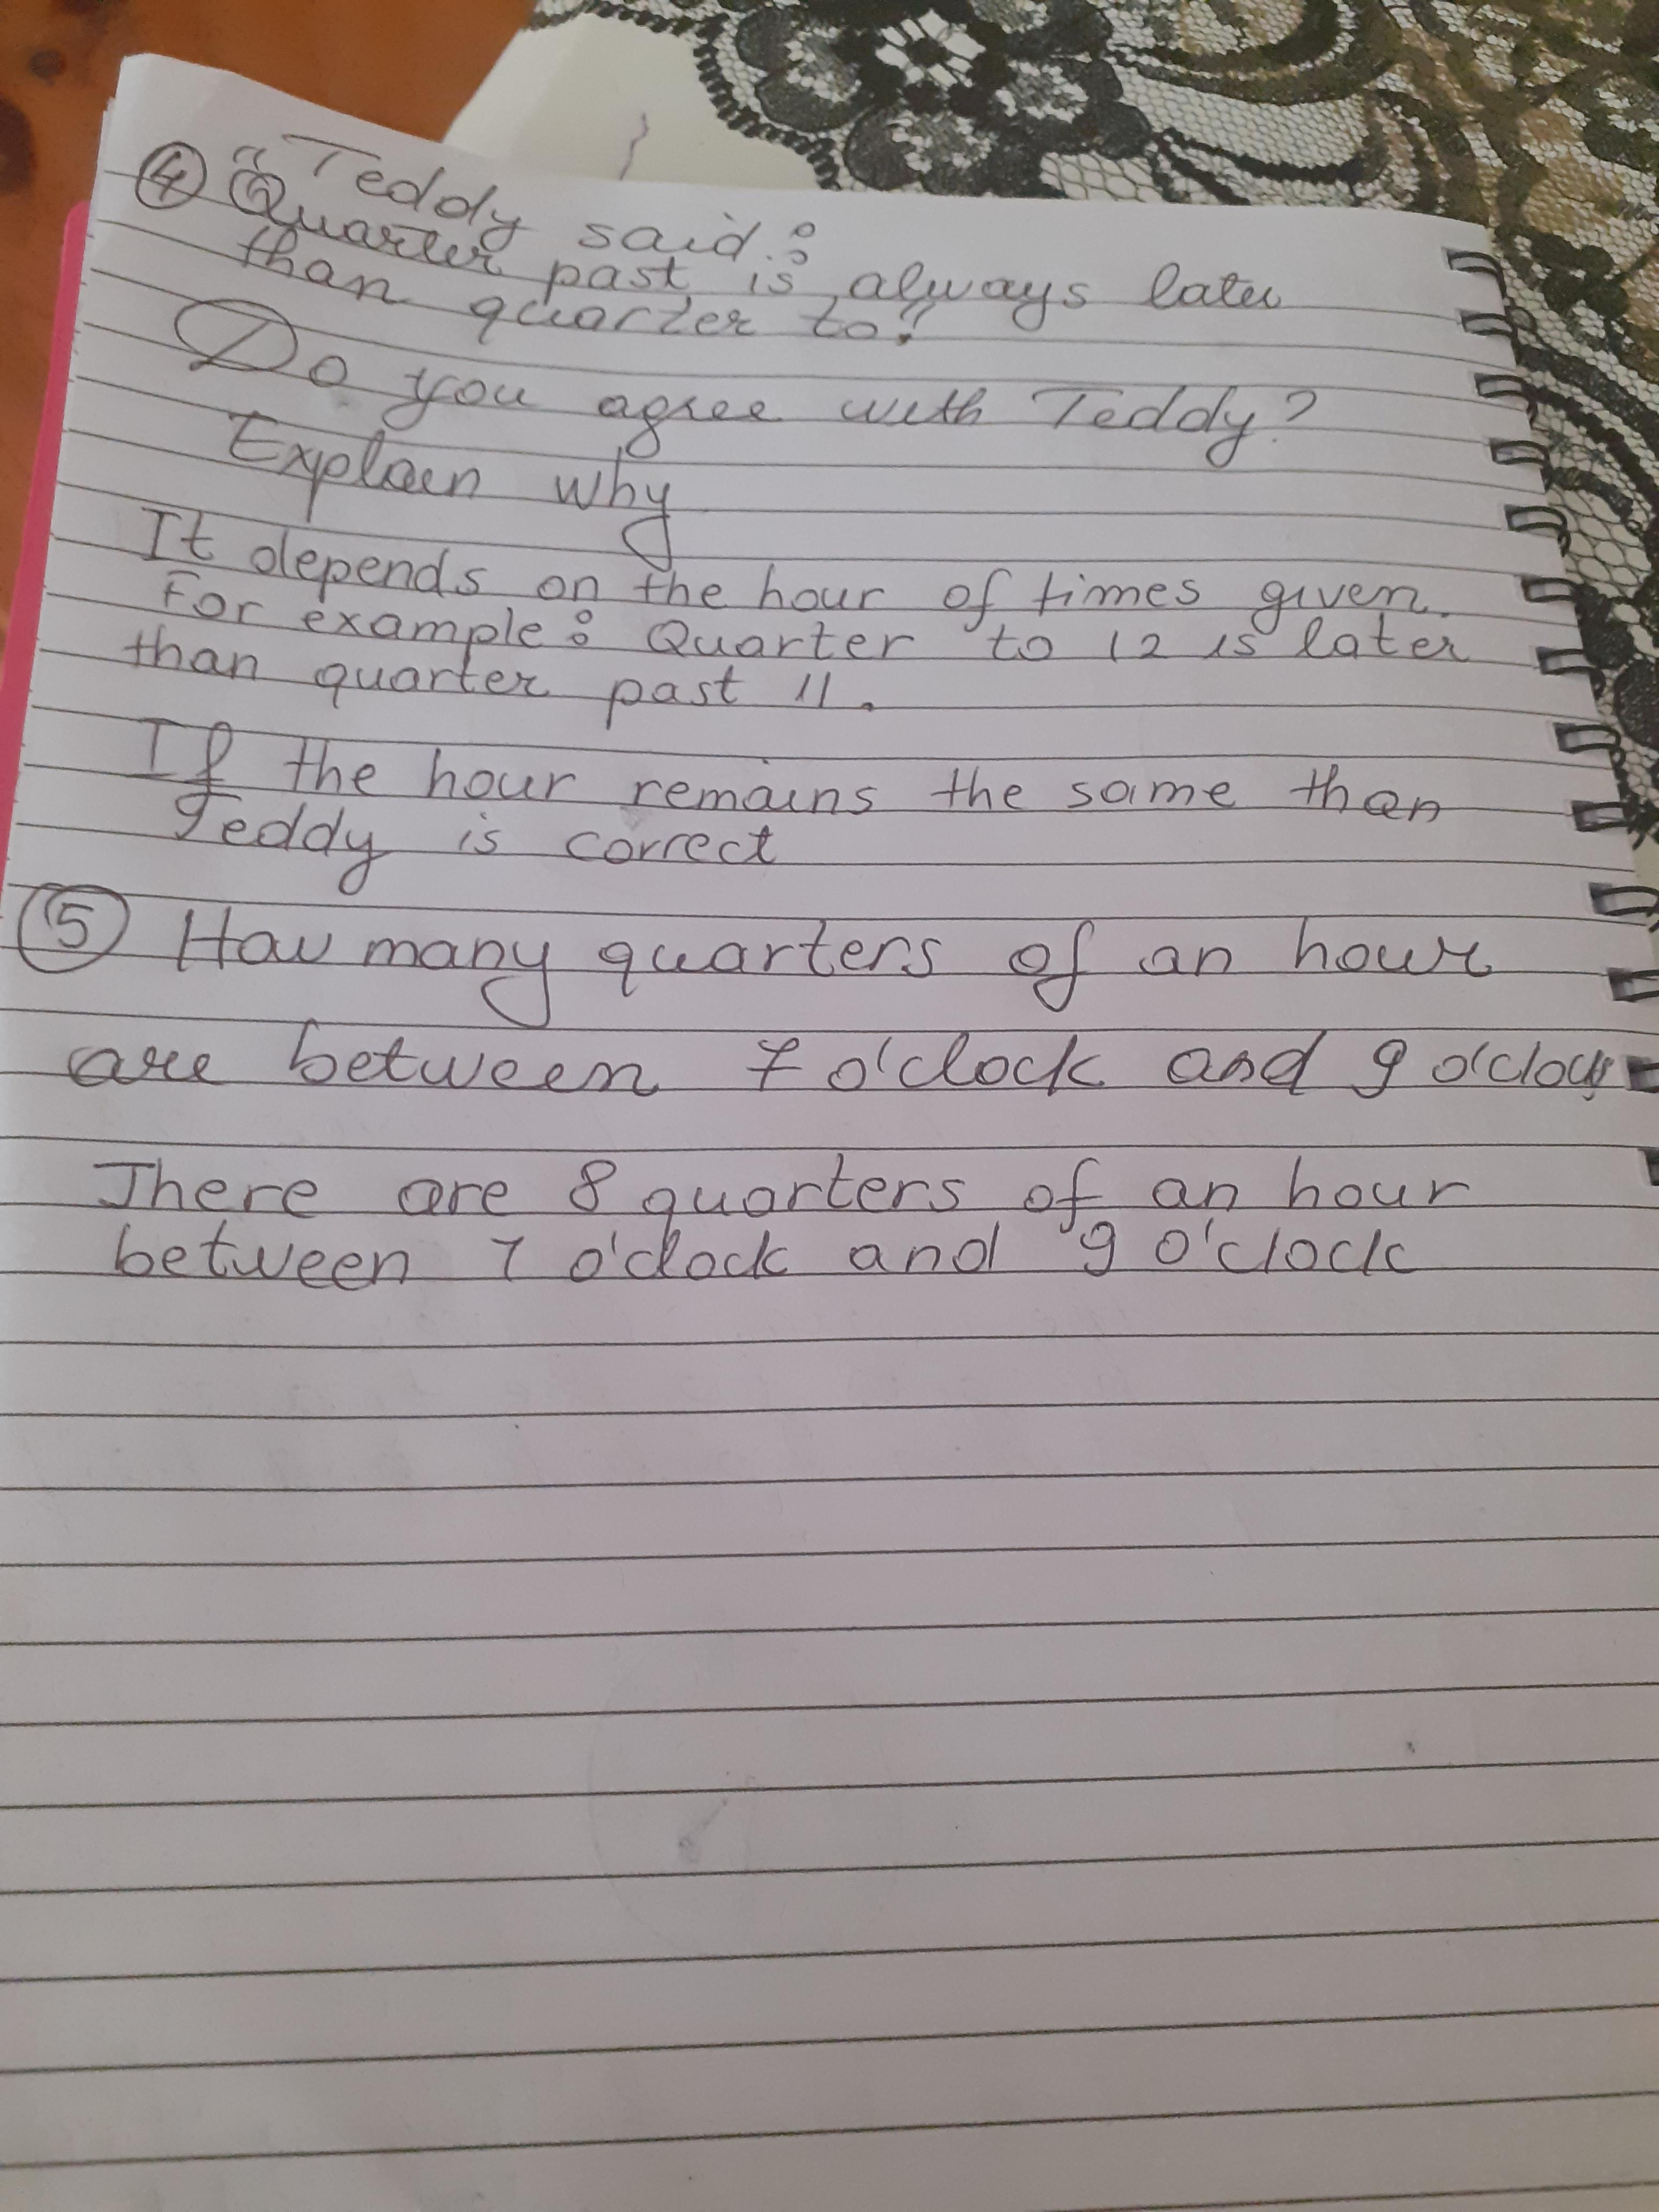 Teddy said:
④ "Quarter past is always later
than quarter to."
Do you agree with Teddy?
Explain why
It depends on the hour of times given.
For example: Quarter to 12 is later
than quarter past 11.
If the hour remains the same then
Teddy is correct
⑤ How many quarters of an hour
are between 7 o'clock and 9 o'clock
There are 8 quarters of an hour
between 7 o'clock and 9 o'clock